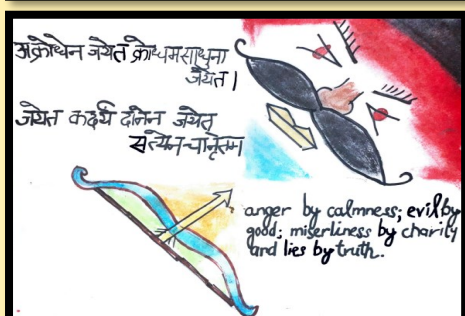 अक्रोधेन जयेत क्रोधमसाधुना
जयेत।
जयेत कदर्य दानेन जयेत्
सत्येन चानृतम
anger by calmness; evil by
good; miserliness by charity
and lies by truth.